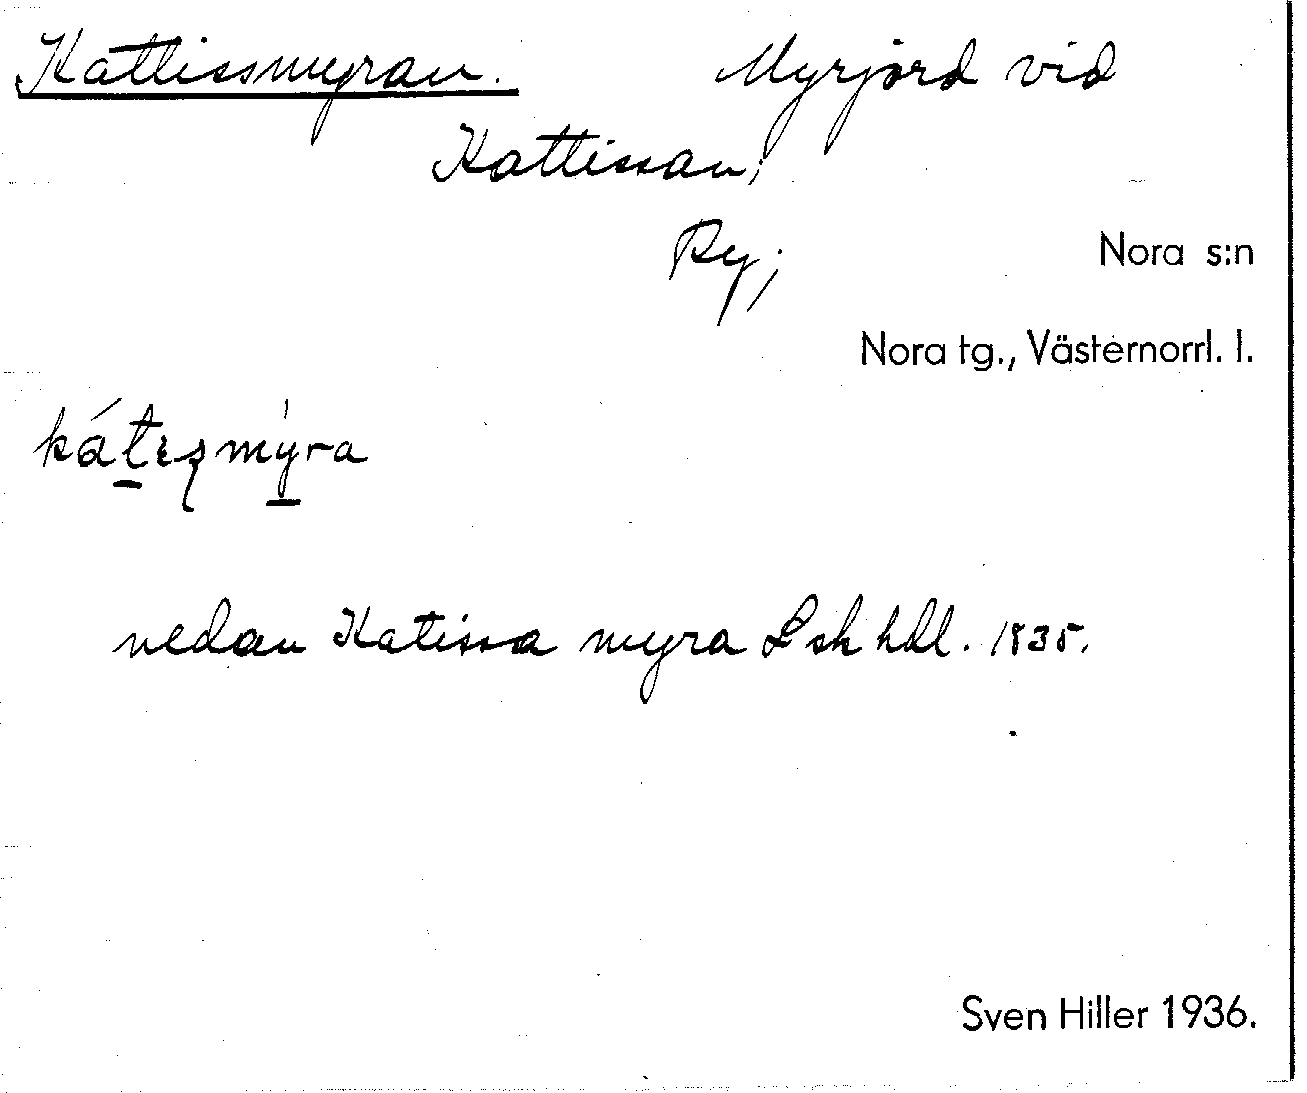 Kattissmyran. Myrjord vid
Kattissan;
Ry; Nora s:n
Nora tg., Västernorrl. l.
kátɪsmýra
nedan Katissa myra Lsk hdl. 1835.
Sven Hiller 1936.